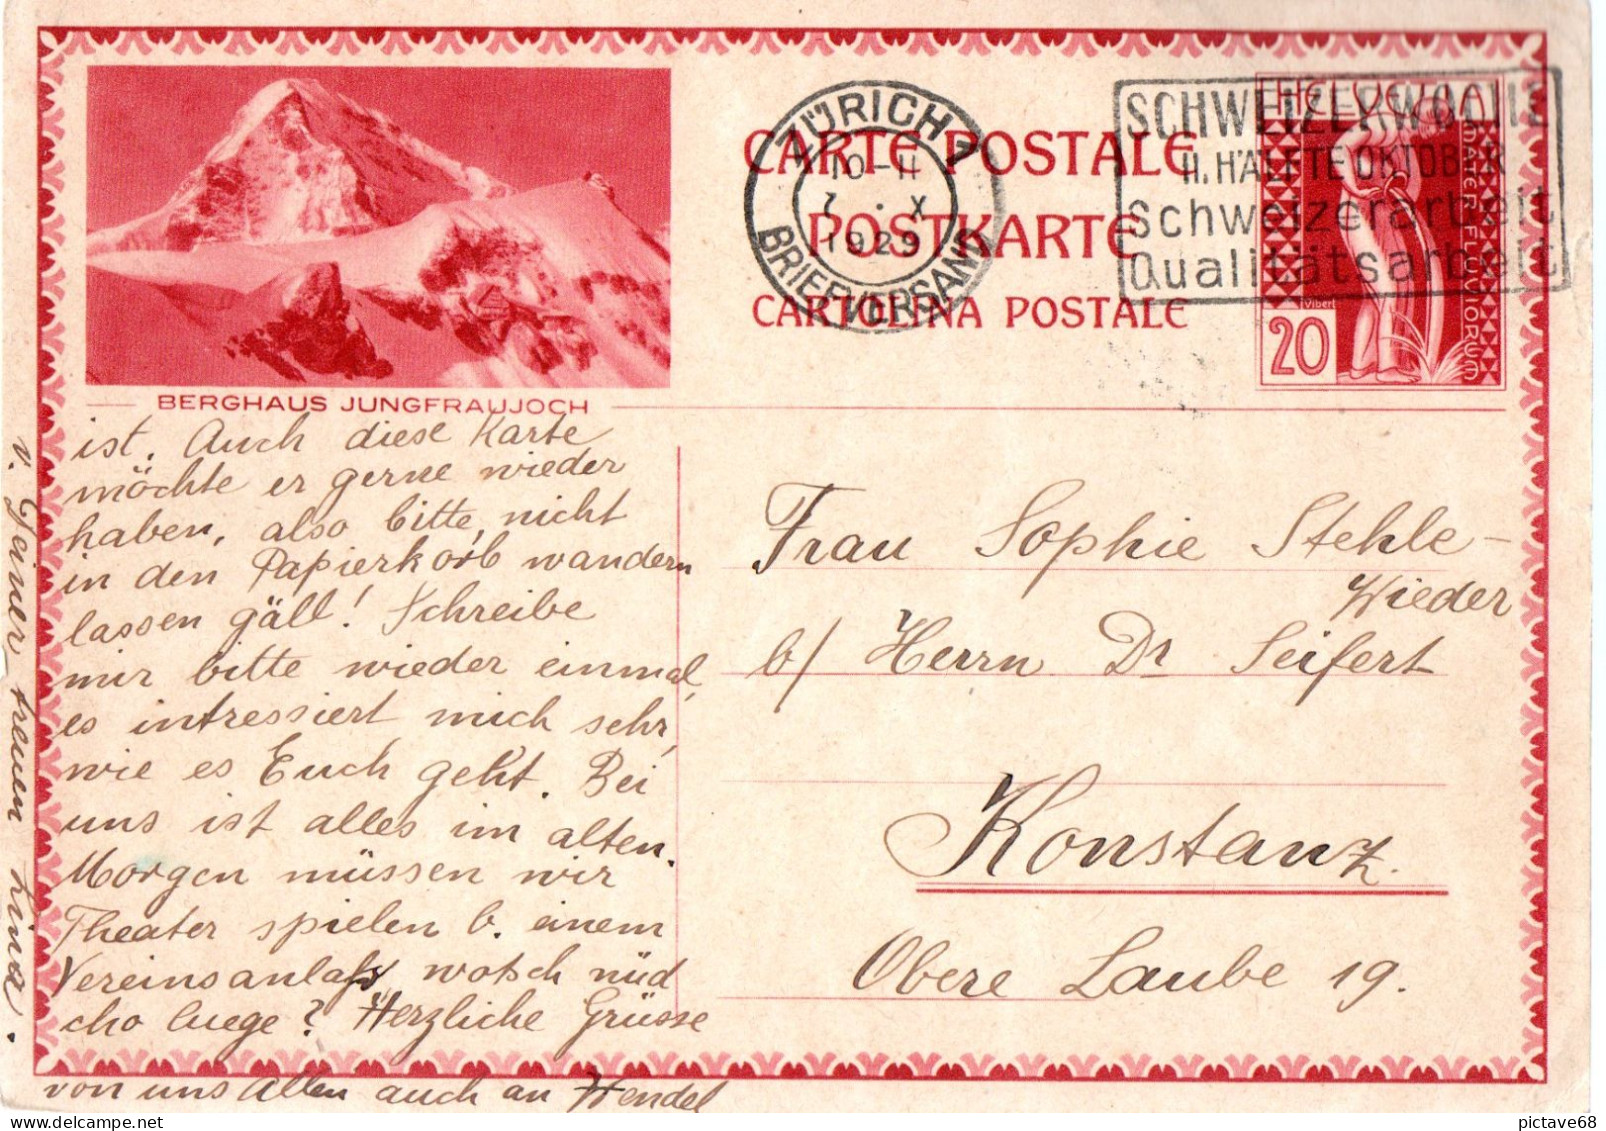 BERGHAUS JUNGFRAUJOCH
CARTE POSTALE
POSTKARTE
CARTOLINA POSTALE
ZÜRICH 7
10-11
7 · X
1929
BRIEFVERSAND
SCHWEIZERWOCHE
II. HÄLFTE OKTOBER
Schweizerarbeit
Qualitätsarbeit
HELVETIA
MATER FLUVIORUM
Vibert
20
ist. Auch diese Karte
möchte er gerne wieder
haben, also bitte, nicht
in den Papierkorb wandern
lassen gäll! Schreibe
mir bitte wieder einmal,
es intressiert mich sehr,
wie es Euch geht. Bei
uns ist alles im alten.
Morgen müssen wir
Theater spielen b. einem
Vereinsanlass, wotsch nüd
cho luege? Herzliche Grüsse
von uns Allen auch an Wendel
v. Deiner treuen Lina.
Frau Sophie Stehle-
Wieder
b/ Herrn Dr Seifert
Konstanz.
Obere Laube 19.
www.delcampe.net
pictave68